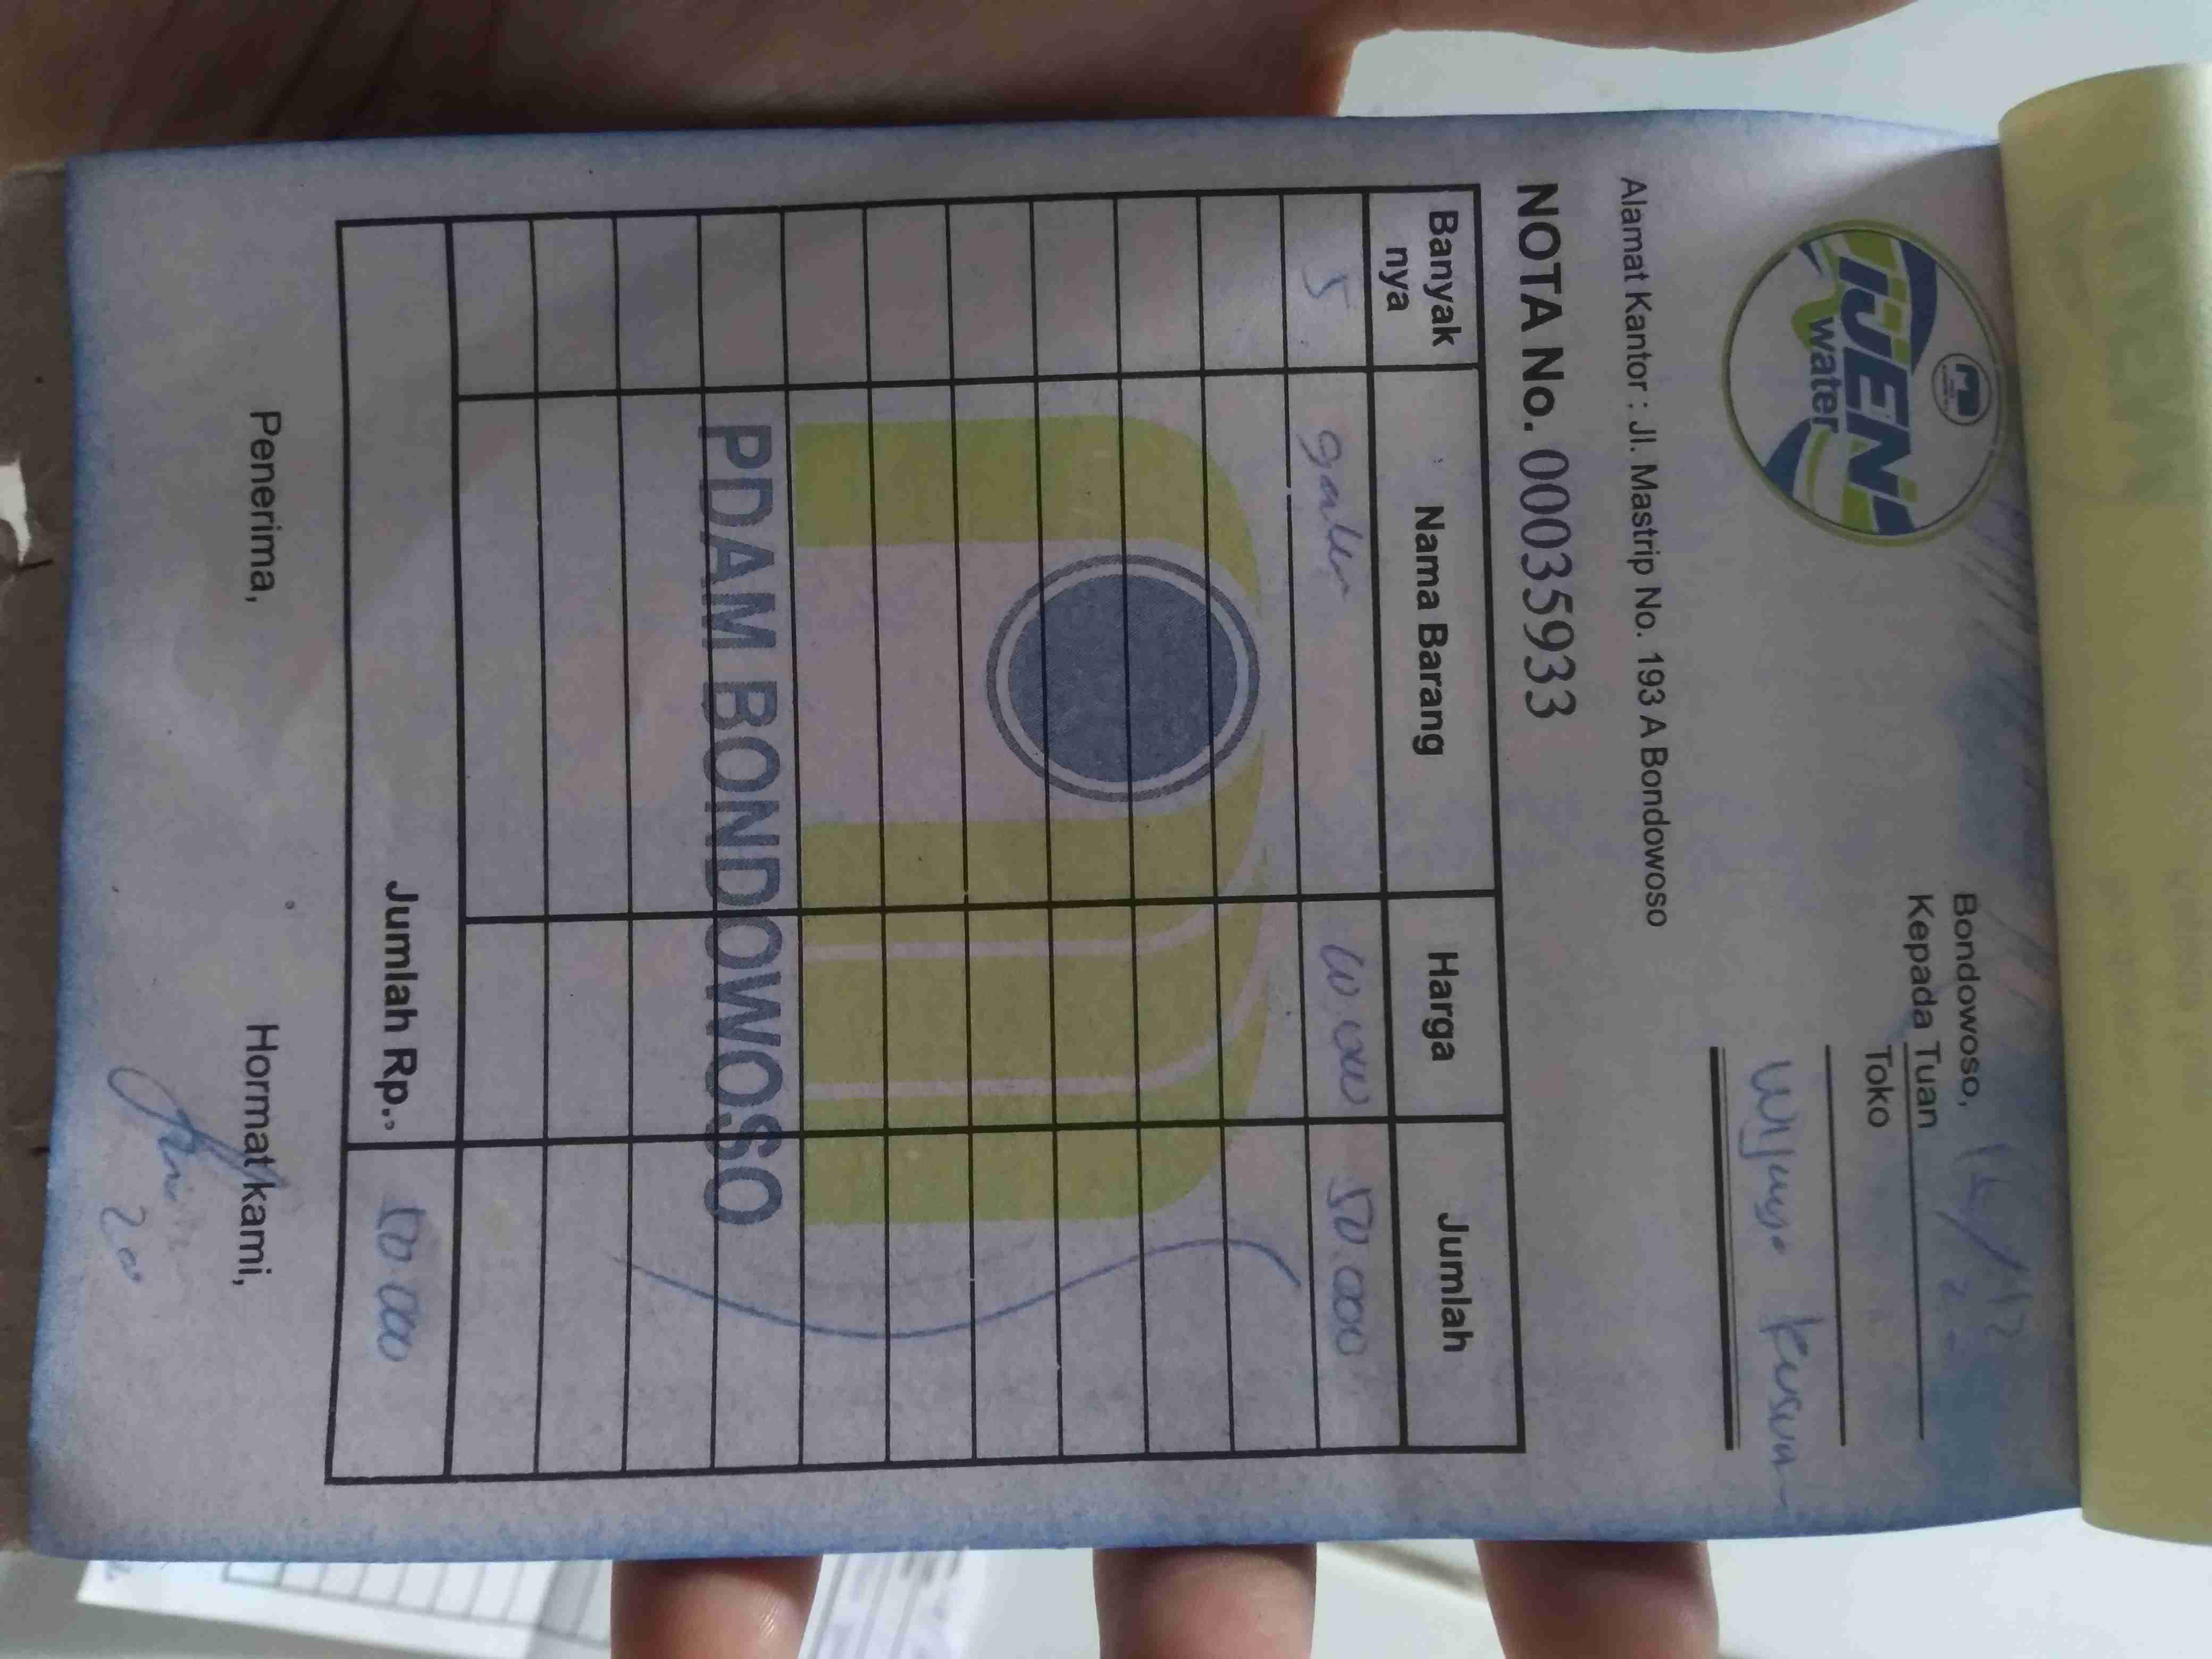 IJEN
water
Bondowoso,
Kepada Tuan
Toko
Wijaya Kusum
Alamat Kantor : Jl. Mastrip No. 193 A Bondowoso
NOTA No. 00035933
Banyak nya Nama Barang Harga Jumlah
5 galon 10.000 50.000
PDAM BONDOWOSO
Jumlah Rp.. 50.000
Penerima, Hormat kami,